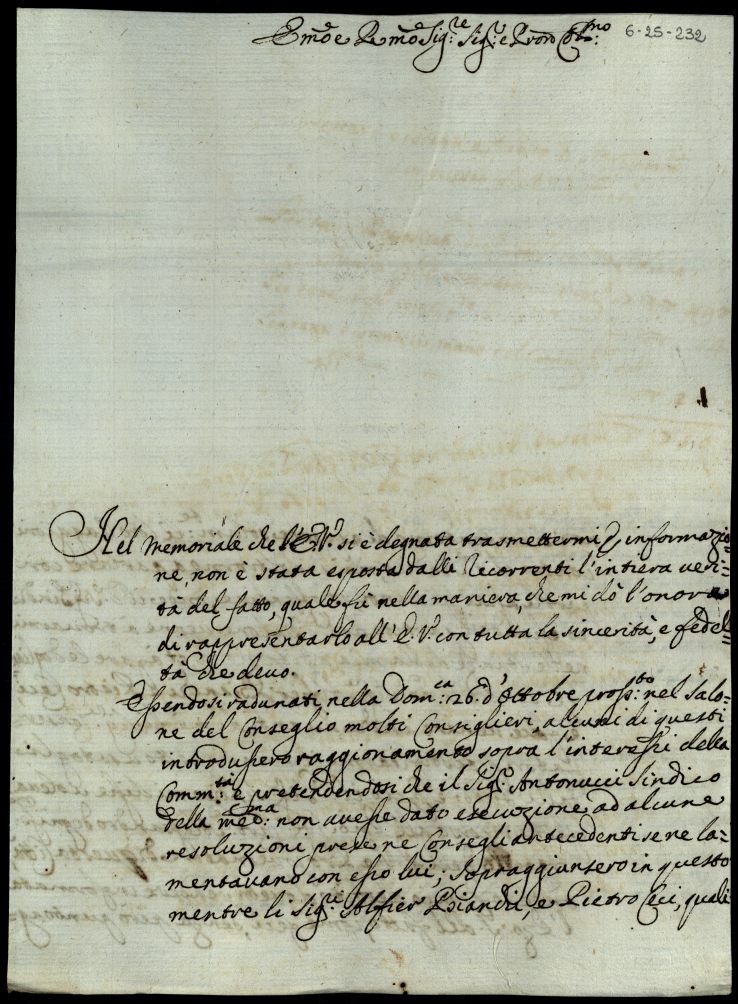 Em̃o e Rm̃o Sig:re Sig:r e Pron Col:mo 6-25-232
Nel memoriale che l'E.V. si è degnata trasmettermi p informazio=
ne, non è stata esposta dalli Ricorrenti l'intiera veri=
tà del fatto, quale fù nella maniera, che mi dò l'onore
di rappresentarlo all'E.V. con tutta la sincerità, e fedel=
tà che devo.
Essendosi radunati nella Dom:ca 26. d'Ottobre pross:to nel Salo=
ne del Conseglio molti Consiglieri, alcuni di questi
introdussero raggionamento sopra l'interessi della
Comm:tà e pretendendosi che il Sig:r Antonucci Sindico
della med:ma non avesse dato esecuzione ad alcune
resoluzioni prese ne Consegli antecedenti se ne la=
mentavano con esso lui; Sopraggiunsero in questo
mentre li Sig:ri Alfier Biandù, e Pietro Ceci, quali